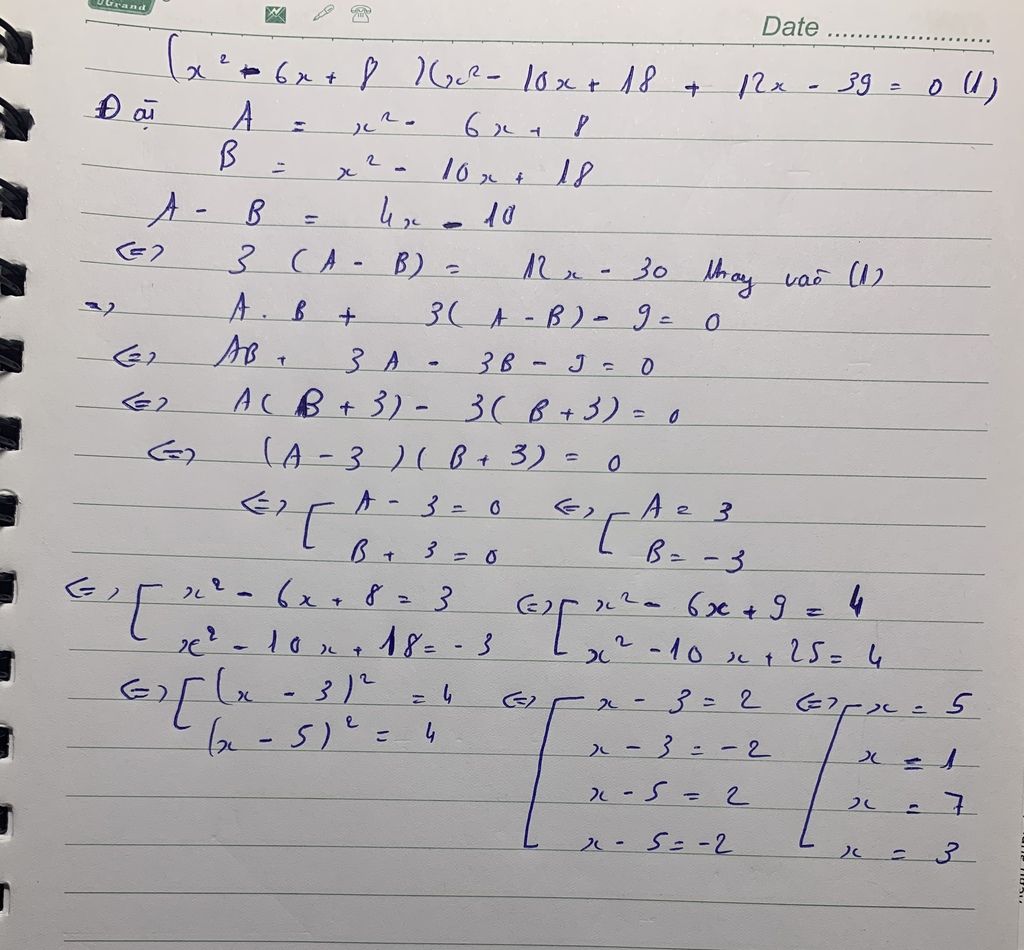 Grand
Date
(x² - 6x + 8 )(x² - 10x + 18 + 12x - 39 = 0 (1)
Đặt A = x² - 6x + 8
B = x² - 10x + 18
A - B = 4x - 10
<=> 3 (A - B) = 12x - 30 thay vào (1)
=> A . B + 3( A - B) - 9 = 0
<=> AB + 3A - 3B - 9 = 0
<=> A( B + 3) - 3( B + 3) = 0
<=> (A - 3 )( B + 3) = 0
<=> [ A - 3 = 0 <=> [ A = 3
B + 3 = 0 B = -3
<=> [ x² - 6x + 8 = 3 <=> [ x² - 6x + 9 = 4
x² - 10x + 18 = -3 x² - 10x + 25 = 4
<=> [ (x - 3)² = 4 <=> [ x - 3 = 2 <=> [ x = 5
(x - 5)² = 4 x - 3 = -2 x = 1
x - 5 = 2 x = 7
x - 5 = -2 x = 3